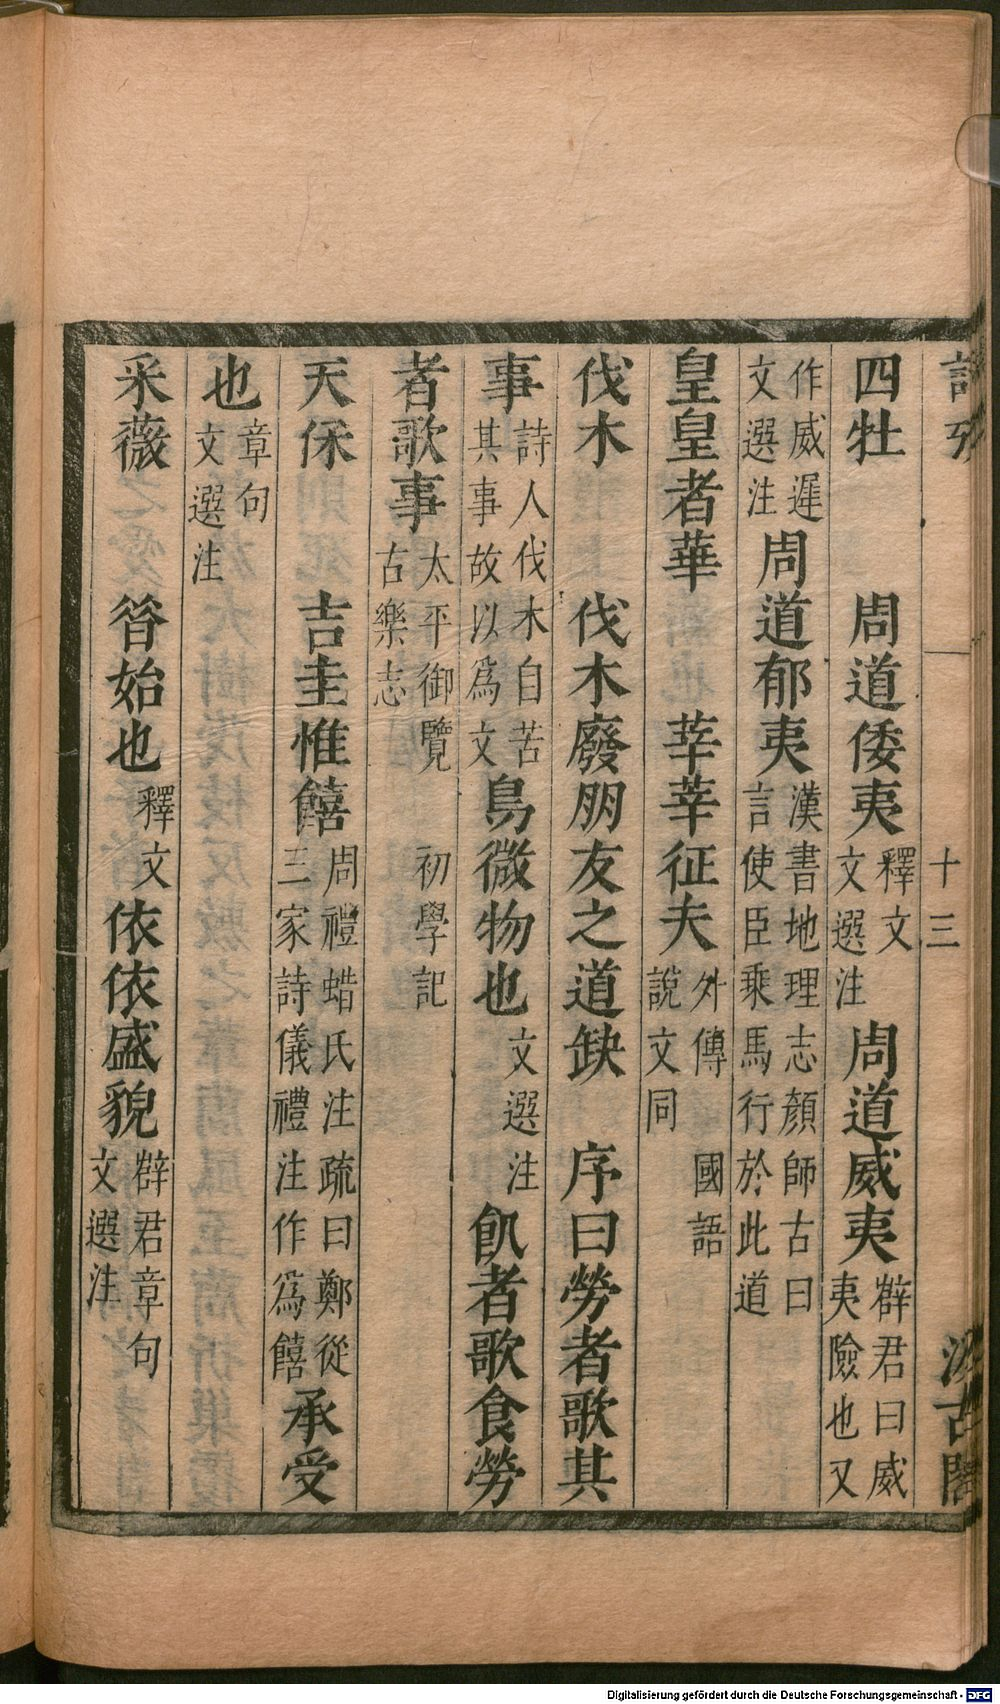 十三
四牡　周道倭夷釋文文選注周道威夷薛君曰威夷險也又
作威遲文選注周道郁夷漢書地理志顏師古曰言使臣乘馬行於此道
皇皇者華　莘莘征夫外傳國語說文同
伐木　伐木廢朋友之道缺　序曰勞者歌其
事詩人伐木自苦其事故以為文鳥微物也文選注飢者歌食勞
者歌事太平御覽初學記古樂志
天保　吉圭惟饎周禮蜡氏注疏曰鄭從三家詩儀禮注作為饎承受
也章句文選注
采薇　昔始也釋文依依盛貌薛君章句文選注
Digitalisierung gefördert durch die Deutsche Forschungsgemeinschaft - DFG